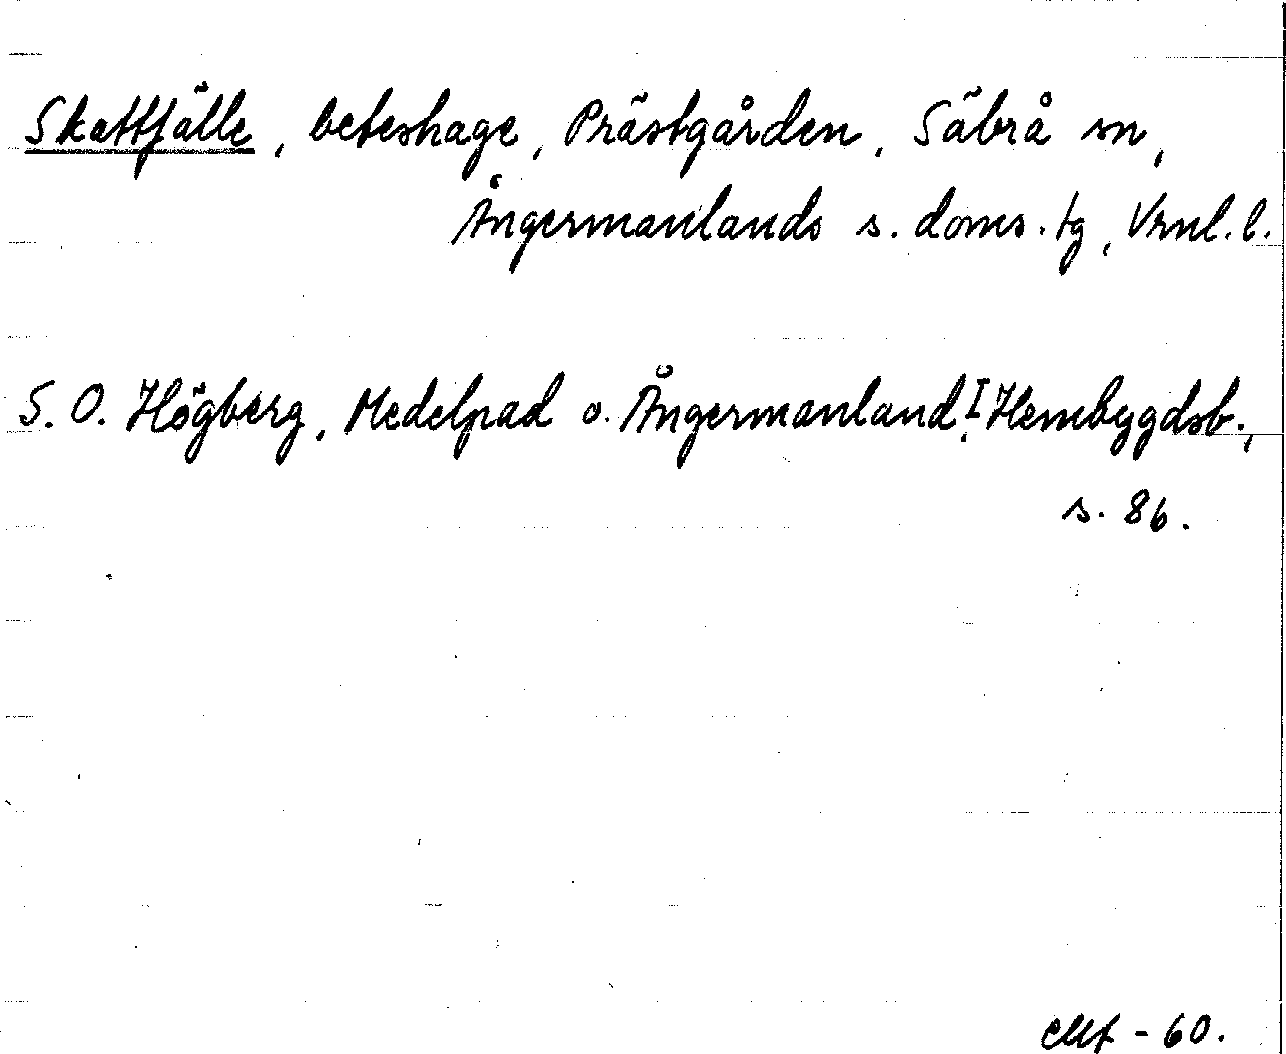 Skattfälle, beteshage, Prästgården, Säbrå sn,
Ångermanlands s. doms. tg, Vrnl. l.
S. O. Högberg, Medelpad o. Ångermanland, I Hembygdsb.,
s. 86.
- 60.